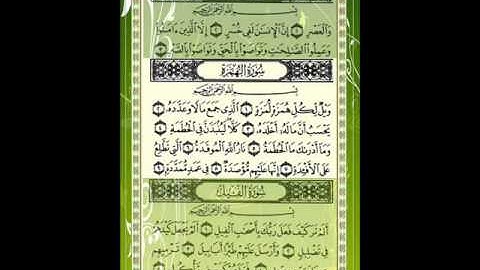 بِسْمِ اللَّهِ الرَّحْمَٰنِ الرَّحِيمِ
وَالْعَصْرِ ۝١ إِنَّ الْإِنسَانَ لَفِي خُسْرٍ ۝٢ إِلَّا الَّذِينَ ءَامَنُوا
وَعَمِلُوا الصَّالِحَاتِ وَتَوَاصَوْا بِالْحَقِّ وَتَوَاصَوْا بِالصَّبْرِ ۝٣
سُورَةُ الْهُمَزَةِ
بِسْمِ اللَّهِ الرَّحْمَٰنِ الرَّحِيمِ
وَيْلٌ لِّكُلِّ هُمَزَةٍ لُّمَزَةٍ ۝١ الَّذِي جَمَعَ مَالًا وَعَدَّدَهُ ۝٢
يَحْسَبُ أَنَّ مَالَهُ أَخْلَدَهُ ۝٣ كَلَّا لَيُنبَذَنَّ فِي الْحُطَمَةِ ۝٤
وَمَا أَدْرَاكَ مَا الْحُطَمَةُ ۝٥ نَارُ اللَّهِ الْمُوقَدَةُ ۝٦ الَّتِي تَطَّلِعُ
عَلَى الْأَفْئِدَةِ ۝٧ إِنَّهَا عَلَيْهِم مُّؤْصَدَةٌ ۝٨ فِي عَمَدٍ مُّمَدَّدَةٍ ۝٩
سُورَةُ الْفِيلِ
بِسْمِ اللَّهِ الرَّحْمَٰنِ الرَّحِيمِ
أَلَمْ تَرَ كَيْفَ فَعَلَ رَبُّكَ بِأَصْحَابِ الْفِيلِ ۝١ أَلَمْ يَجْعَلْ كَيْدَهُمْ
فِي تَضْلِيلٍ ۝٢ وَأَرْسَلَ عَلَيْهِمْ طَيْرًا أَبَابِيلَ ۝٣ تَرْمِيهِم